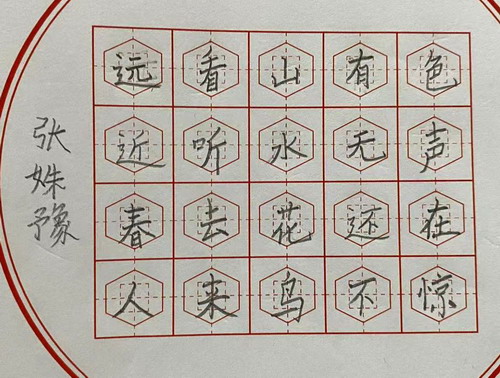 远看山有色
近听水无声
春去花还在
人来鸟不惊
张姝豫